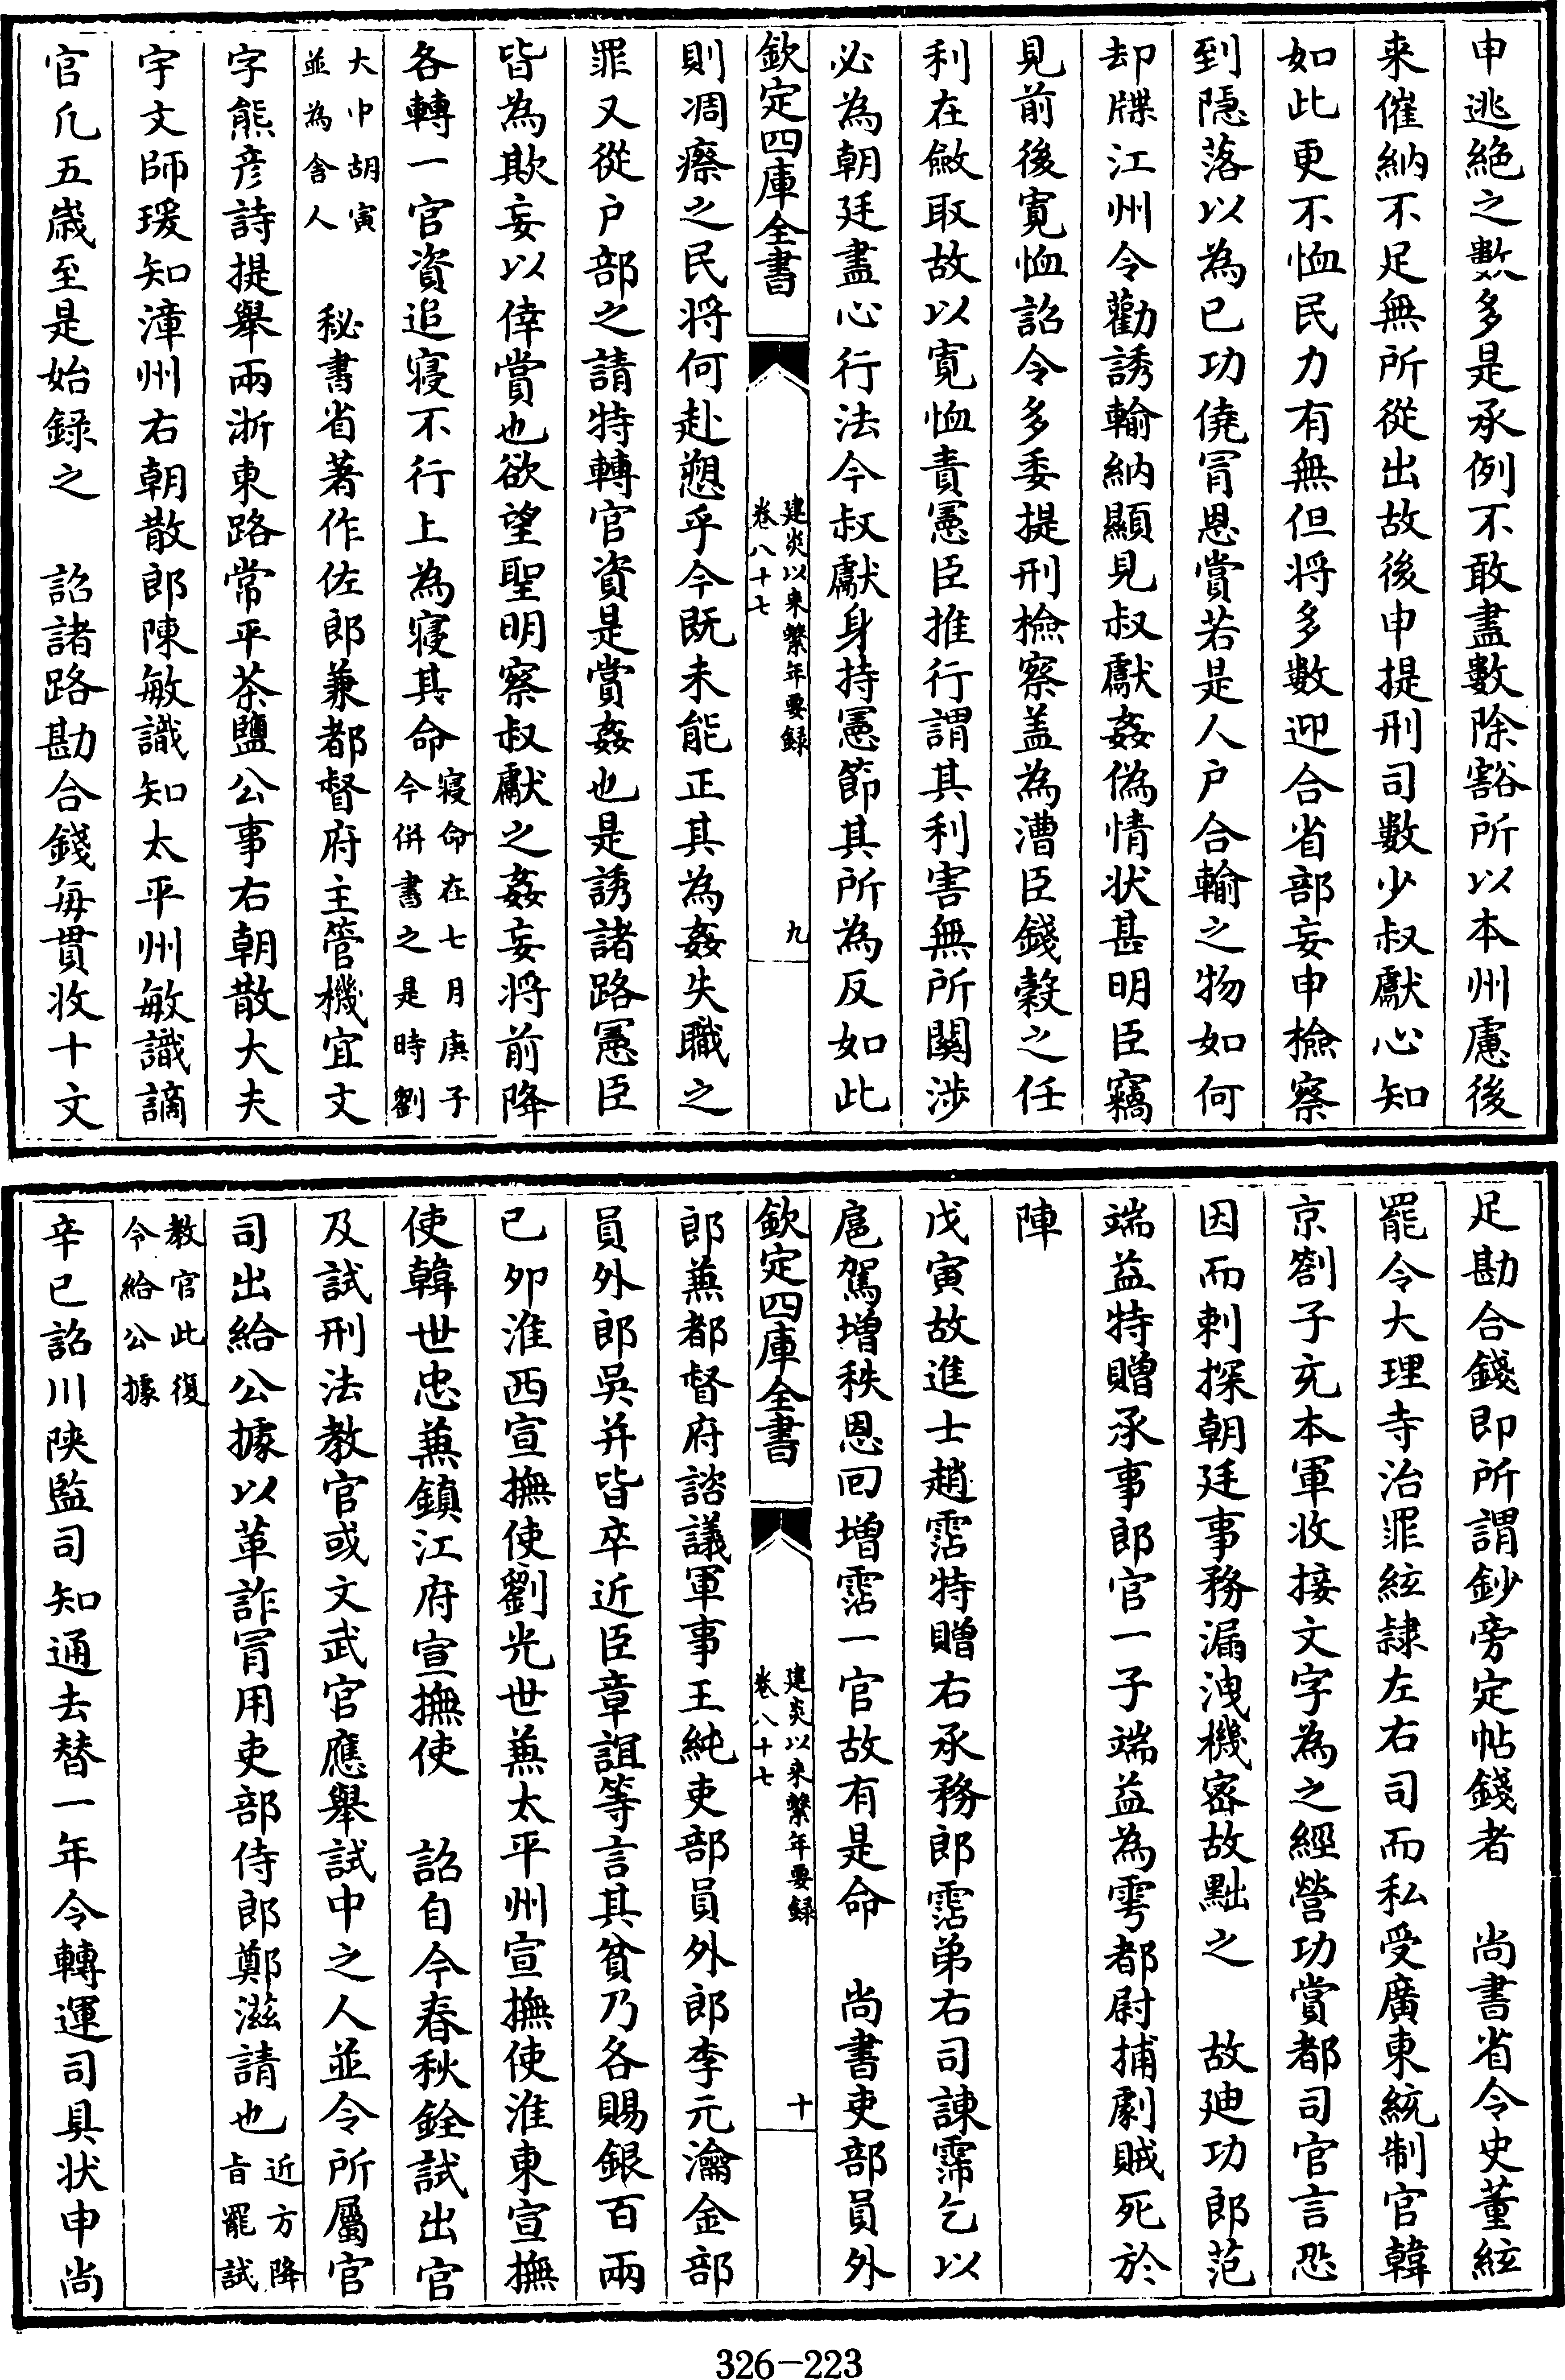 申逃絶之數多是承例不敢盡數除豁所以本州慮後
来催納不足無所從出故後申提刑司數少叔獻心知
如此更不恤民力有無但将多數迎合省部妄申檢察
到隠落以為已功僥冐恩賞若是人户合輸之物如何
却牒江州令勸誘輸納顯見叔獻姦偽情状甚明臣竊
見前後寛恤詔令多委提刑檢察盖為漕臣錢糓之任
利在斂取故以寛恤責憲臣推行謂其利害無所闗涉
必為朝廷盡心行法今叔獻身持憲節其所為反如此
欽定四庫全書
建炎以来繫年要録
卷八十七
九
則凋瘵之民将何赴愬乎今既未能正其為姦失職之
罪又從户部之請特轉官資是賞姦也是誘諸路憲臣
皆為欺妄以倖賞也欲望聖明察叔獻之姦妄将前降
各轉一官資追寢不行上為寢其命寢命在七月庚子
今併書之是時劉
大中胡寅
並為舍人
秘書省著作佐郎兼都督府主管機宜文
字熊彦詩提舉兩浙東路常平茶鹽公事右朝散大夫
宇文師瑗知漳州右朝散郎陳敏識知太平州敏識謫
官凢五歳至是始録之　詔諸路勘合錢毎貫收十文
足勘合錢即所謂鈔旁定帖錢者　尚書省令史董絃
罷令大理寺治罪絃隷左右司而私受廣東統制官韓
京劄子充本軍收接文字為之經營功賞都司官言恐
因而刺探朝廷事務漏洩機宻故黜之　故廸功郎范
端益特贈承事郎官一子端益為雩都尉捕劇賊死於
陣
戊寅故進士趙霑特贈右承務郎霑弟右司諫霈乞以
扈駕增秩恩囘増霑一官故有是命　尚書吏部員外
欽定四庫全書
建炎以来繫年要録
卷八十七
十
郎兼都督府諮議軍事王純吏部員外郎李元瀹金部
員外郎吳并皆卒近臣章誼等言其貧乃各賜銀百兩
已夘淮西宣撫使劉光世兼太平州宣撫使淮東宣撫
使韓世忠兼鎮江府宣撫使　詔自今春秋銓試出官
及試刑法教官或文武官應舉試中之人並令所屬官
司出給公據以革詐冐用吏部侍郎鄭滋請也近方降
旨罷試
教官此復
令給公據
辛已詔川陜監司知通去替一年令轉運司具状申尚
326-223